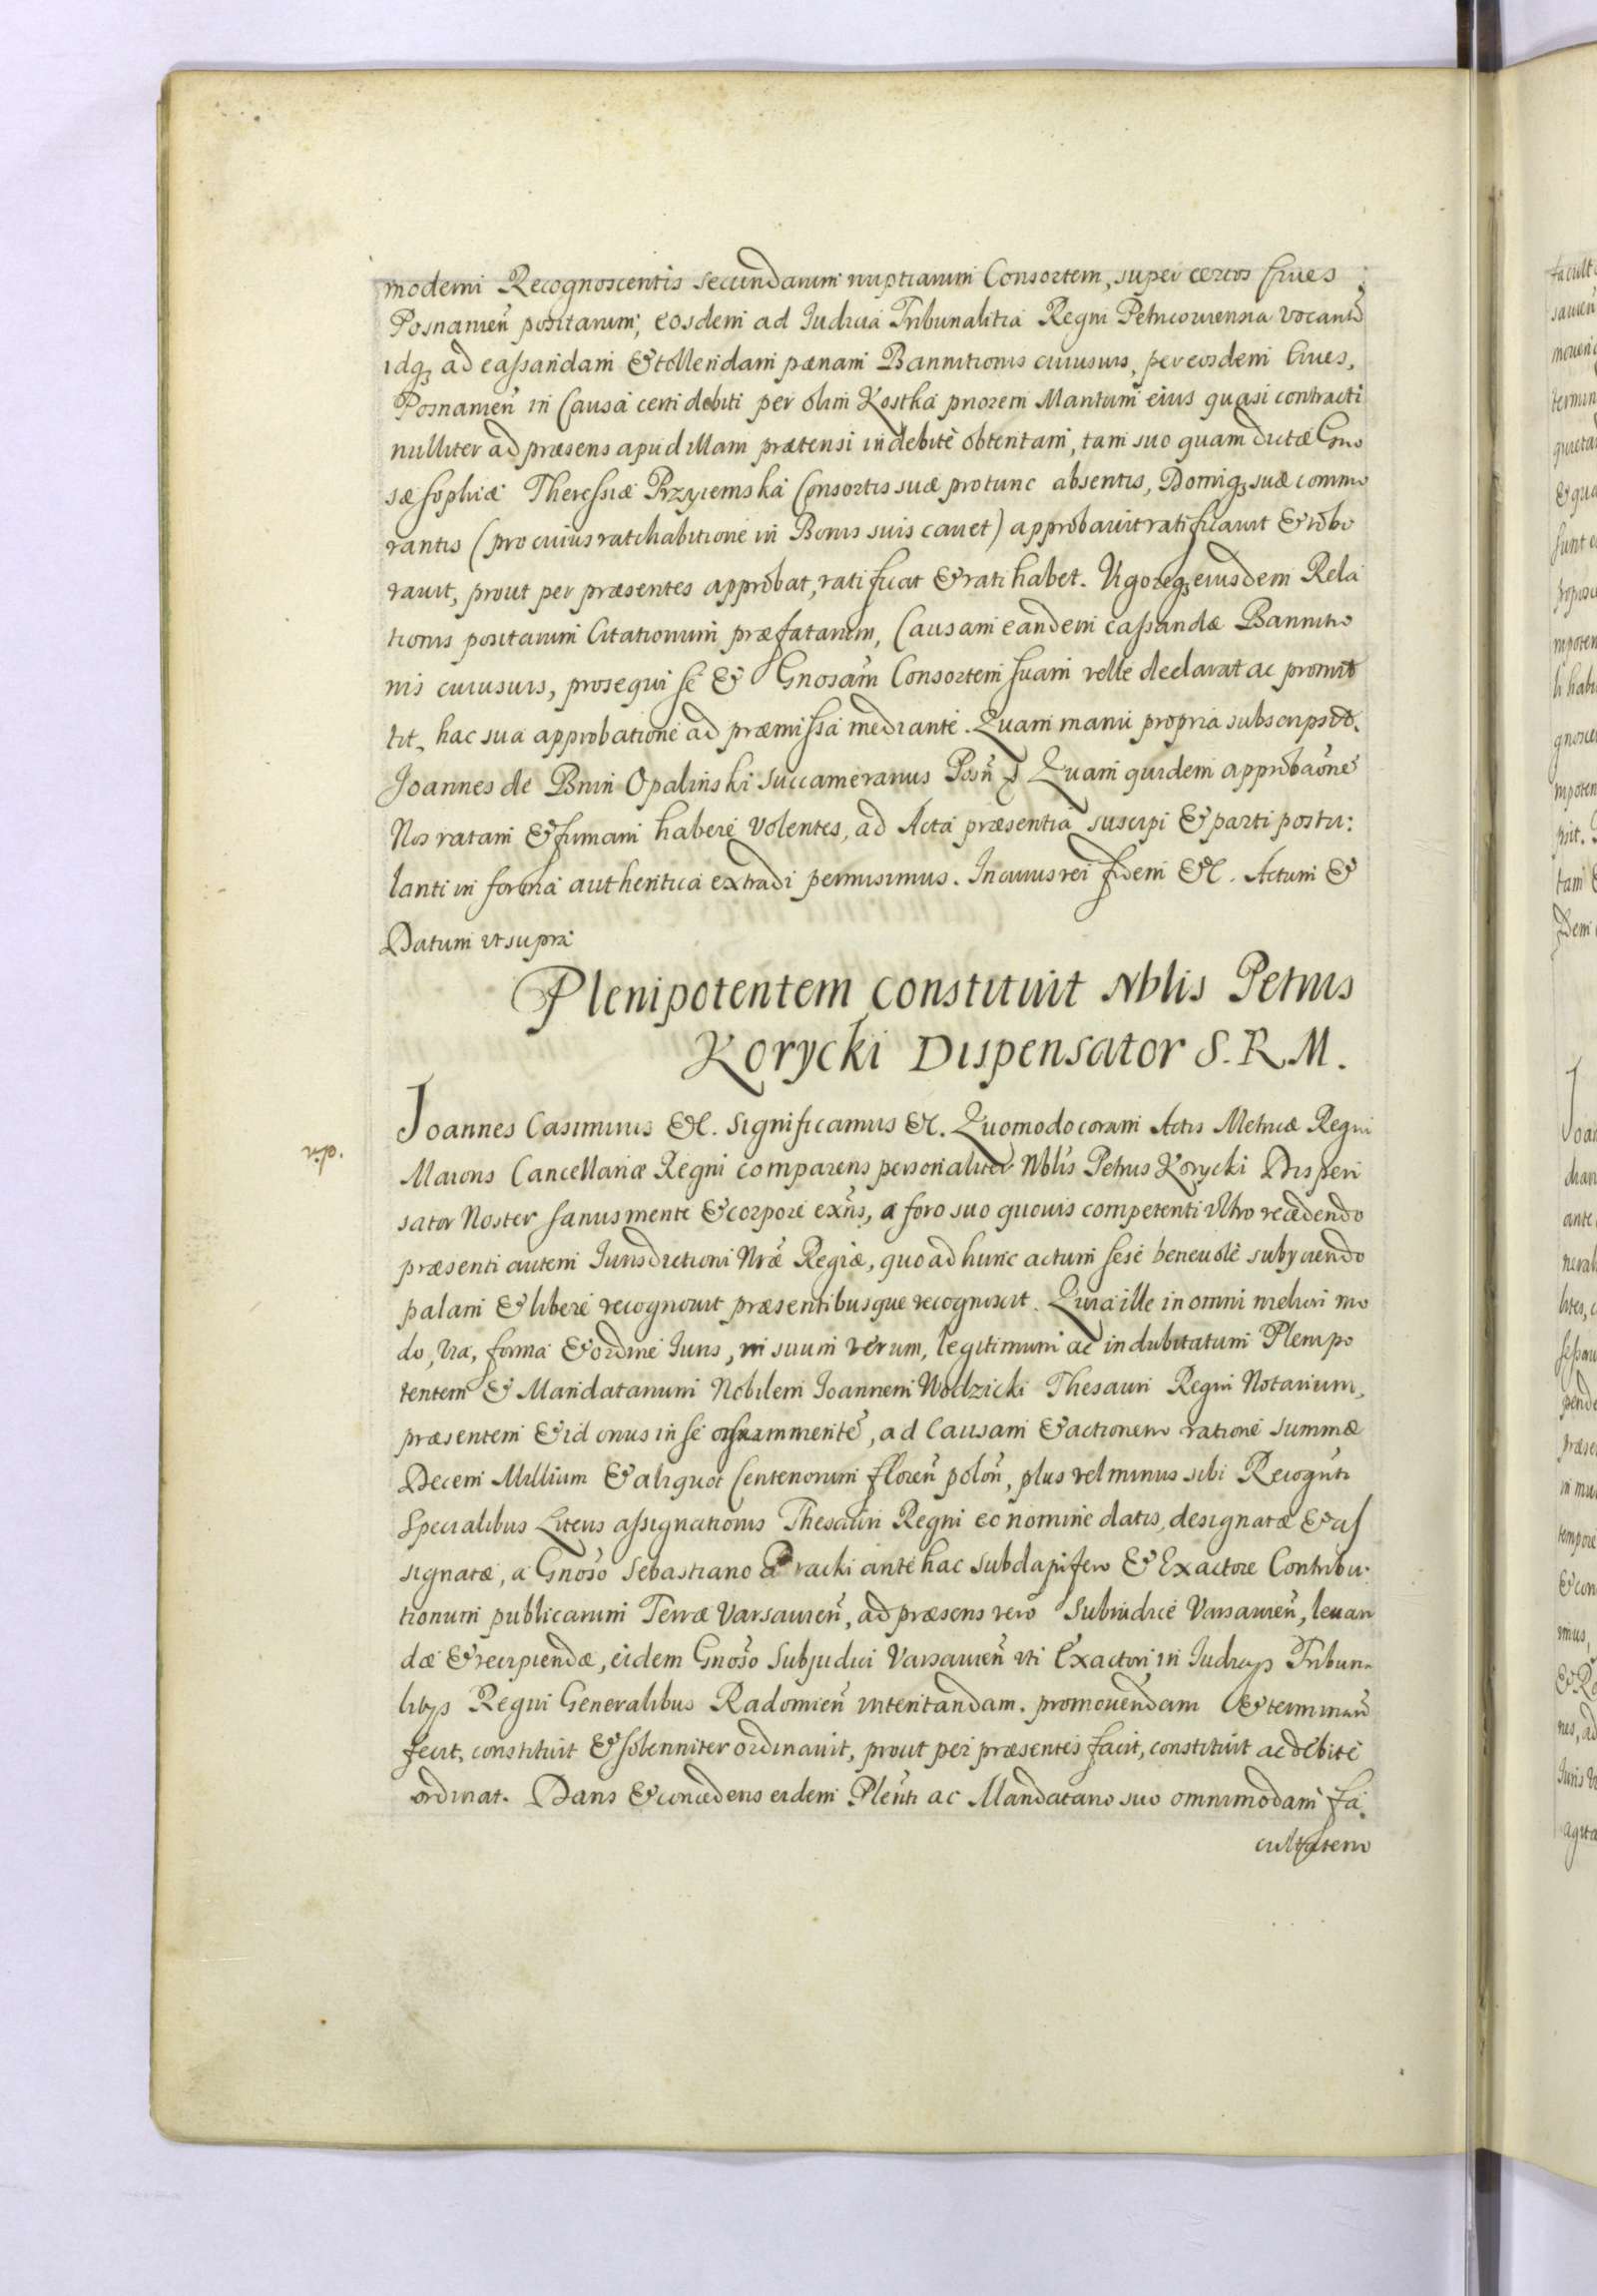 moderni Recognoscentis secundarum nuptiarum Consortem, super certos Cives
Posnanień positarum, eosdem ad Iudicia Tribunalitia Regni Petricoviensia vocand
idq3 ad cassandam & tollendam pænam Bannitionis cuiusvis, per eosdem Cives,
Posnanień in Causa certi debiti per olim Kostka priorem Maritum eius quasi contracti
nulliter ad præsens apud illam prætensi indebitè obtentam, tam suo quam dictæ Gno
sæ Sophiæ Theressiæ Przyiemska Consortis suæ protunc absentis, Domiq3 suæ commo
rantis (pro cuius ratihabitione in Bonis suis cavet) approbavit ratificavit & robo
ravit, prout per præsentes approbat, ratificat & ratihabet. Vigoreq3 eiusdem Rela
tionis positarum Citationum præfatarum, Causam eandem cassandæ Bannitio
nis cuiusvis, prosequi se & Gnosam̃ Consortem suam velle declarat ac promit
tit, hac sua approbatione ad præmissa mediante. Quam manu propria subscripsit.
Joannes de Bnin Opalinski Succameranus Posñ Quam quidem approbaõne
Nos ratam & firmam habere volentes, ad Acta præsentia suscipi & parti postu:
lanti in forma authentica extradi permisimus. In cuius rei fidem &c. Actum &
Datum ut supra
Plenipotentem constituit Nblis Petrus
Korycki Dispensator S. R. M.
Joannes Casimirus &c. Significamus &c. Quomodo coram Actis Metricæ Regni
Maioris Cancellariæ Regni comparens personaliter Nblis Petrus Korycki Dispen
sator Noster sanus mente & corpore exñs, a foro suo quovis competenti ultro recedendo
præsenti autem Iurisdictioni Nræ Regiæ, quo ad hunc actum sese benevolè subyciendo
palam & liberè recognovit præsentibusque recognoscit. Quia ille in omni meliori mo
do, via, forma & ordine Iuris, in suum verum, legitimum ac indubitatum Plenipo
tentem & Mandatarium Nobilem Joannem Wodzicki Thesauri Regni Notarium,
præsentem & id onus in se assumentẽ, ad Causam & actionem ratione summæ
Decem Millium & aliquot Centenorum floreñ poloñ, plus vel minus sibi Recogñti
Specialibus Literis assignationis Thesauri Regni eo nomine datis, designatæ & as
signatæ, a Gnoso Sebastiano racki antehac subdapifero & Exactore Contribu:
tionum publicarum Terræ Varsavień, ad præsens vero Subiudice Varsavień, levan
dæ & recipiendæ, eidem Gnoso Subjudici Varsavień uti Exactori in Iudicys Tribuna
litys Regni Generalibus Radomień intentandam. promovendam & terminañd
fecit, constituit & solenniter ordinavit, prout per præsentes facit, constituit ac debitè
ordinat. Dans & concedens eidem Pleñti ac Mandatario suo omnimodam fa
cultatem